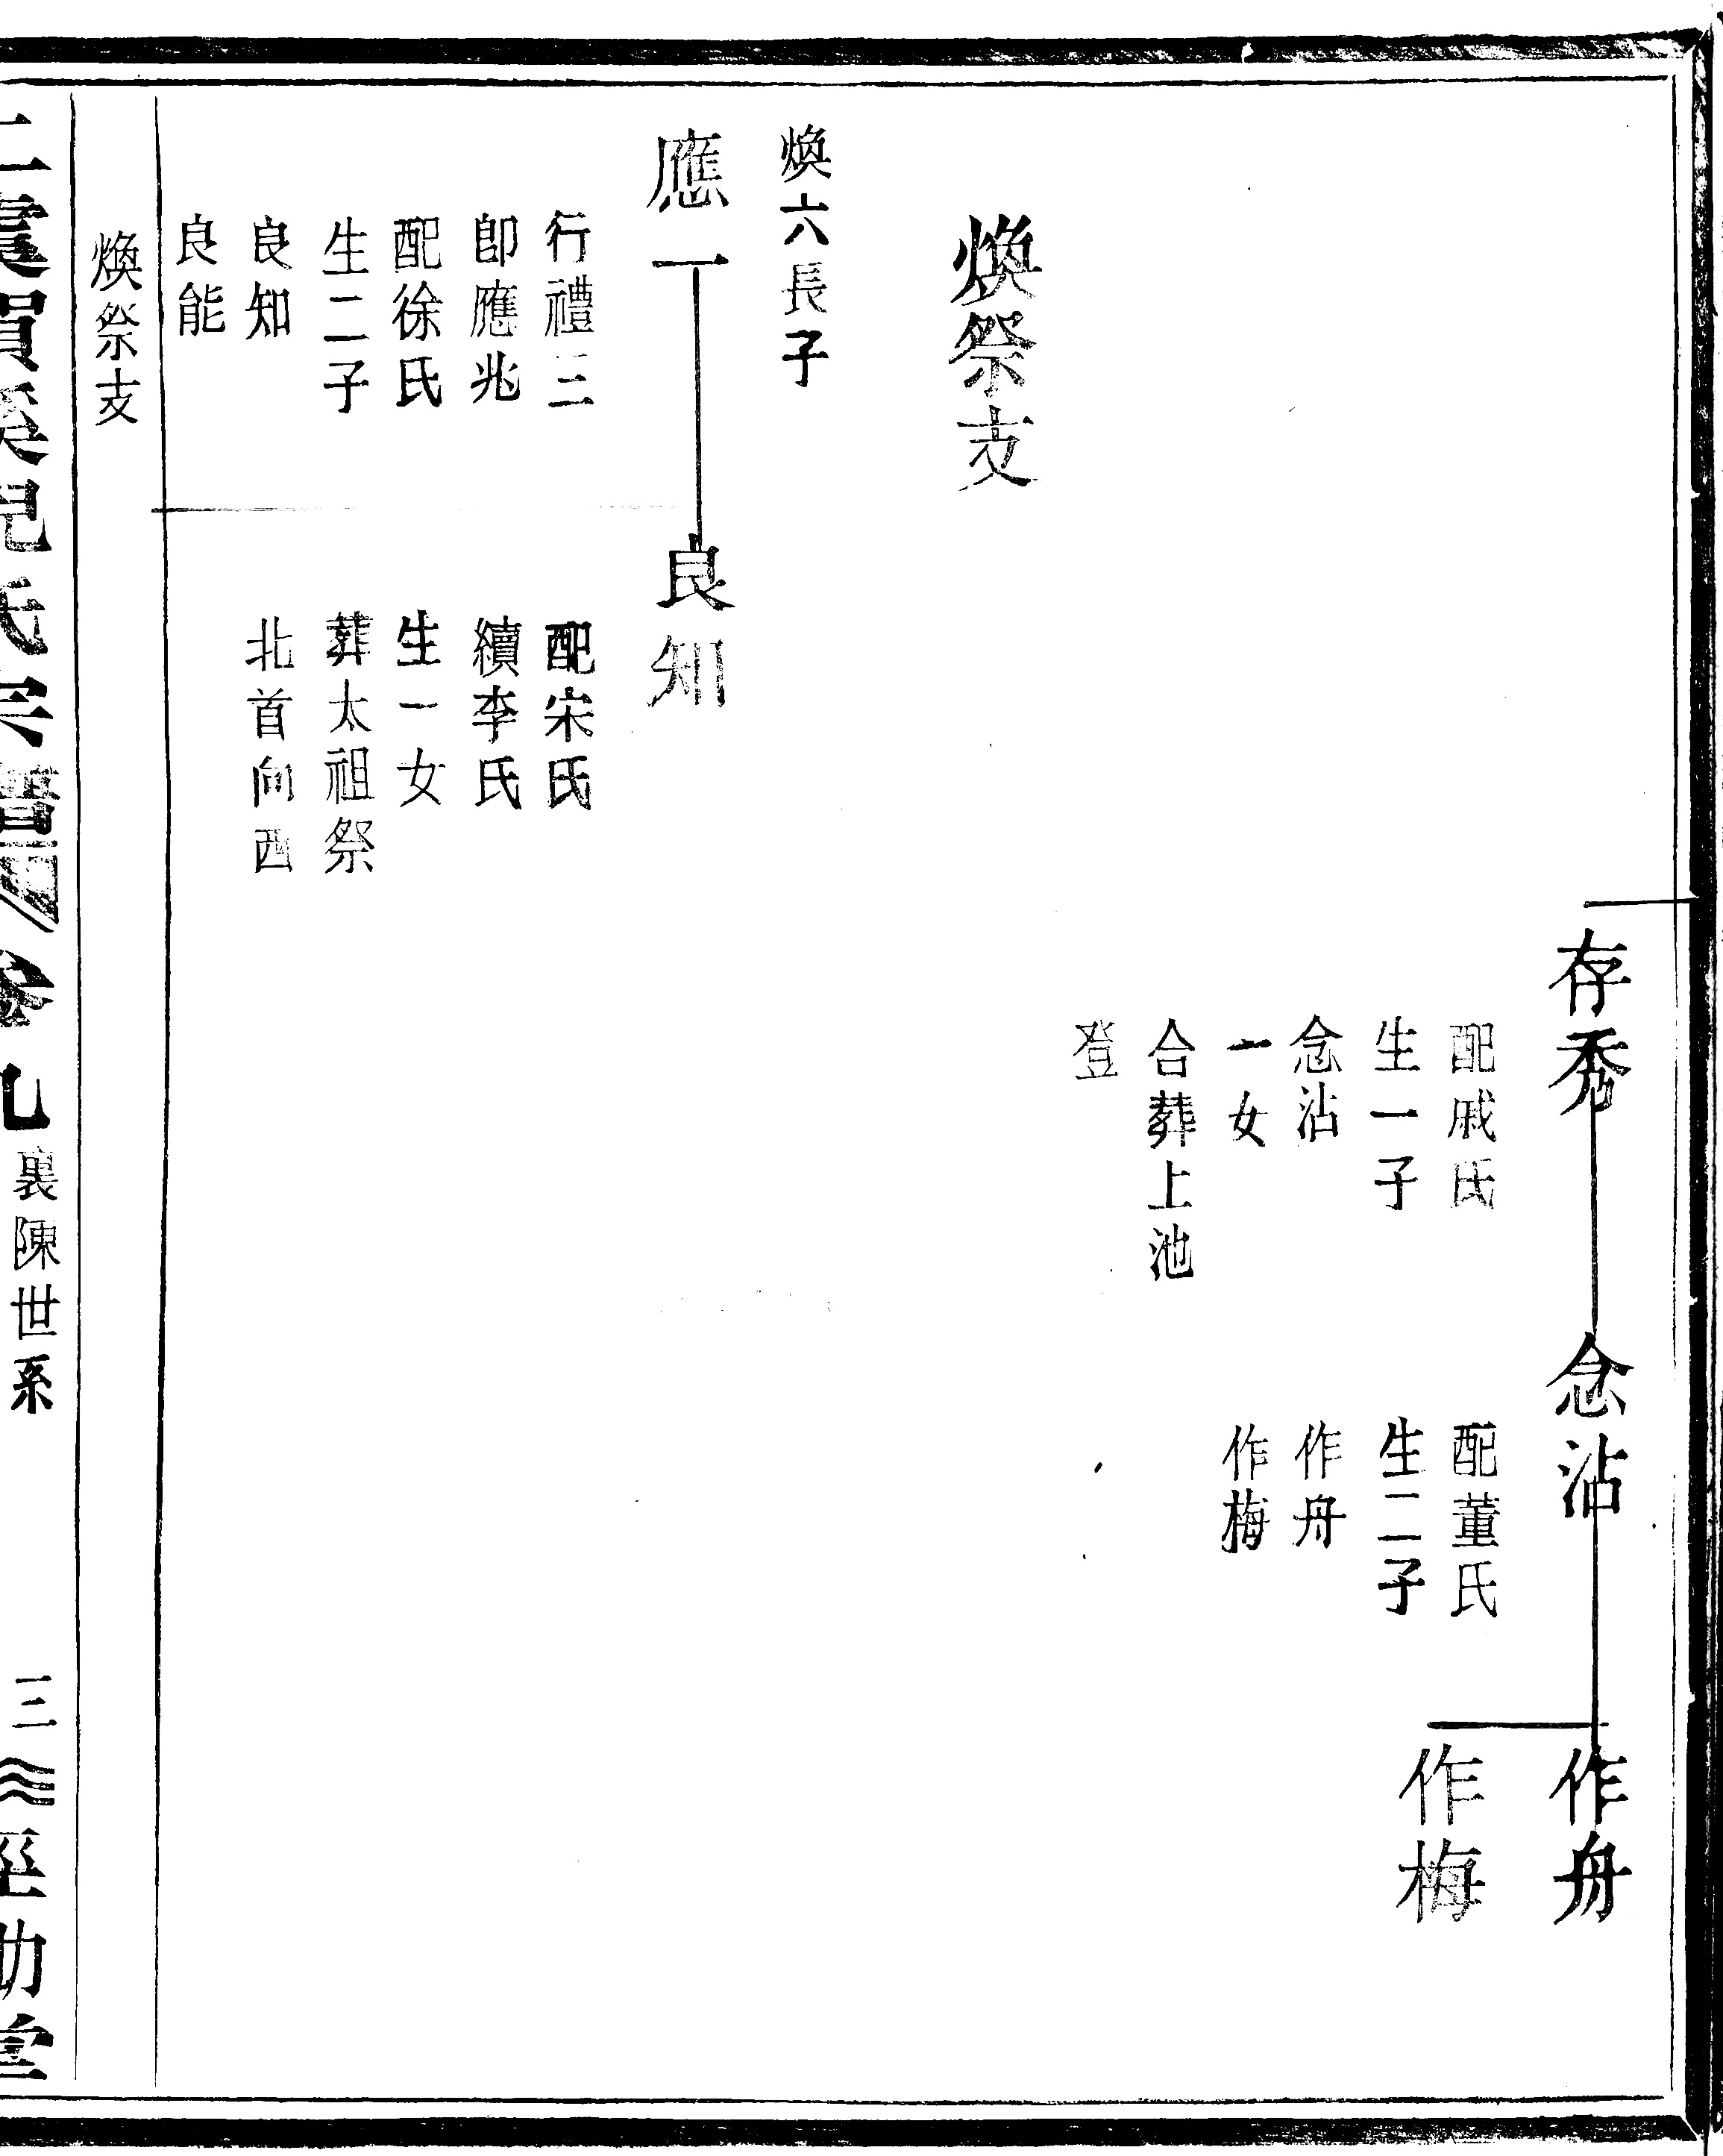 存秀
配戚氏
生一子
念沾
一女
合葬上池
登
念沾
配董氏
生二子
作舟
作梅
作舟
作梅
煥祭支
煥六長子
應一
行禮三
卽應兆
配徐氏
生二子
良知
良能
良知
配宋氏
續李氏
生一女
葬太祖祭
北首向西
煥祭支
氏宗譜
卷九
裏陳世系
三